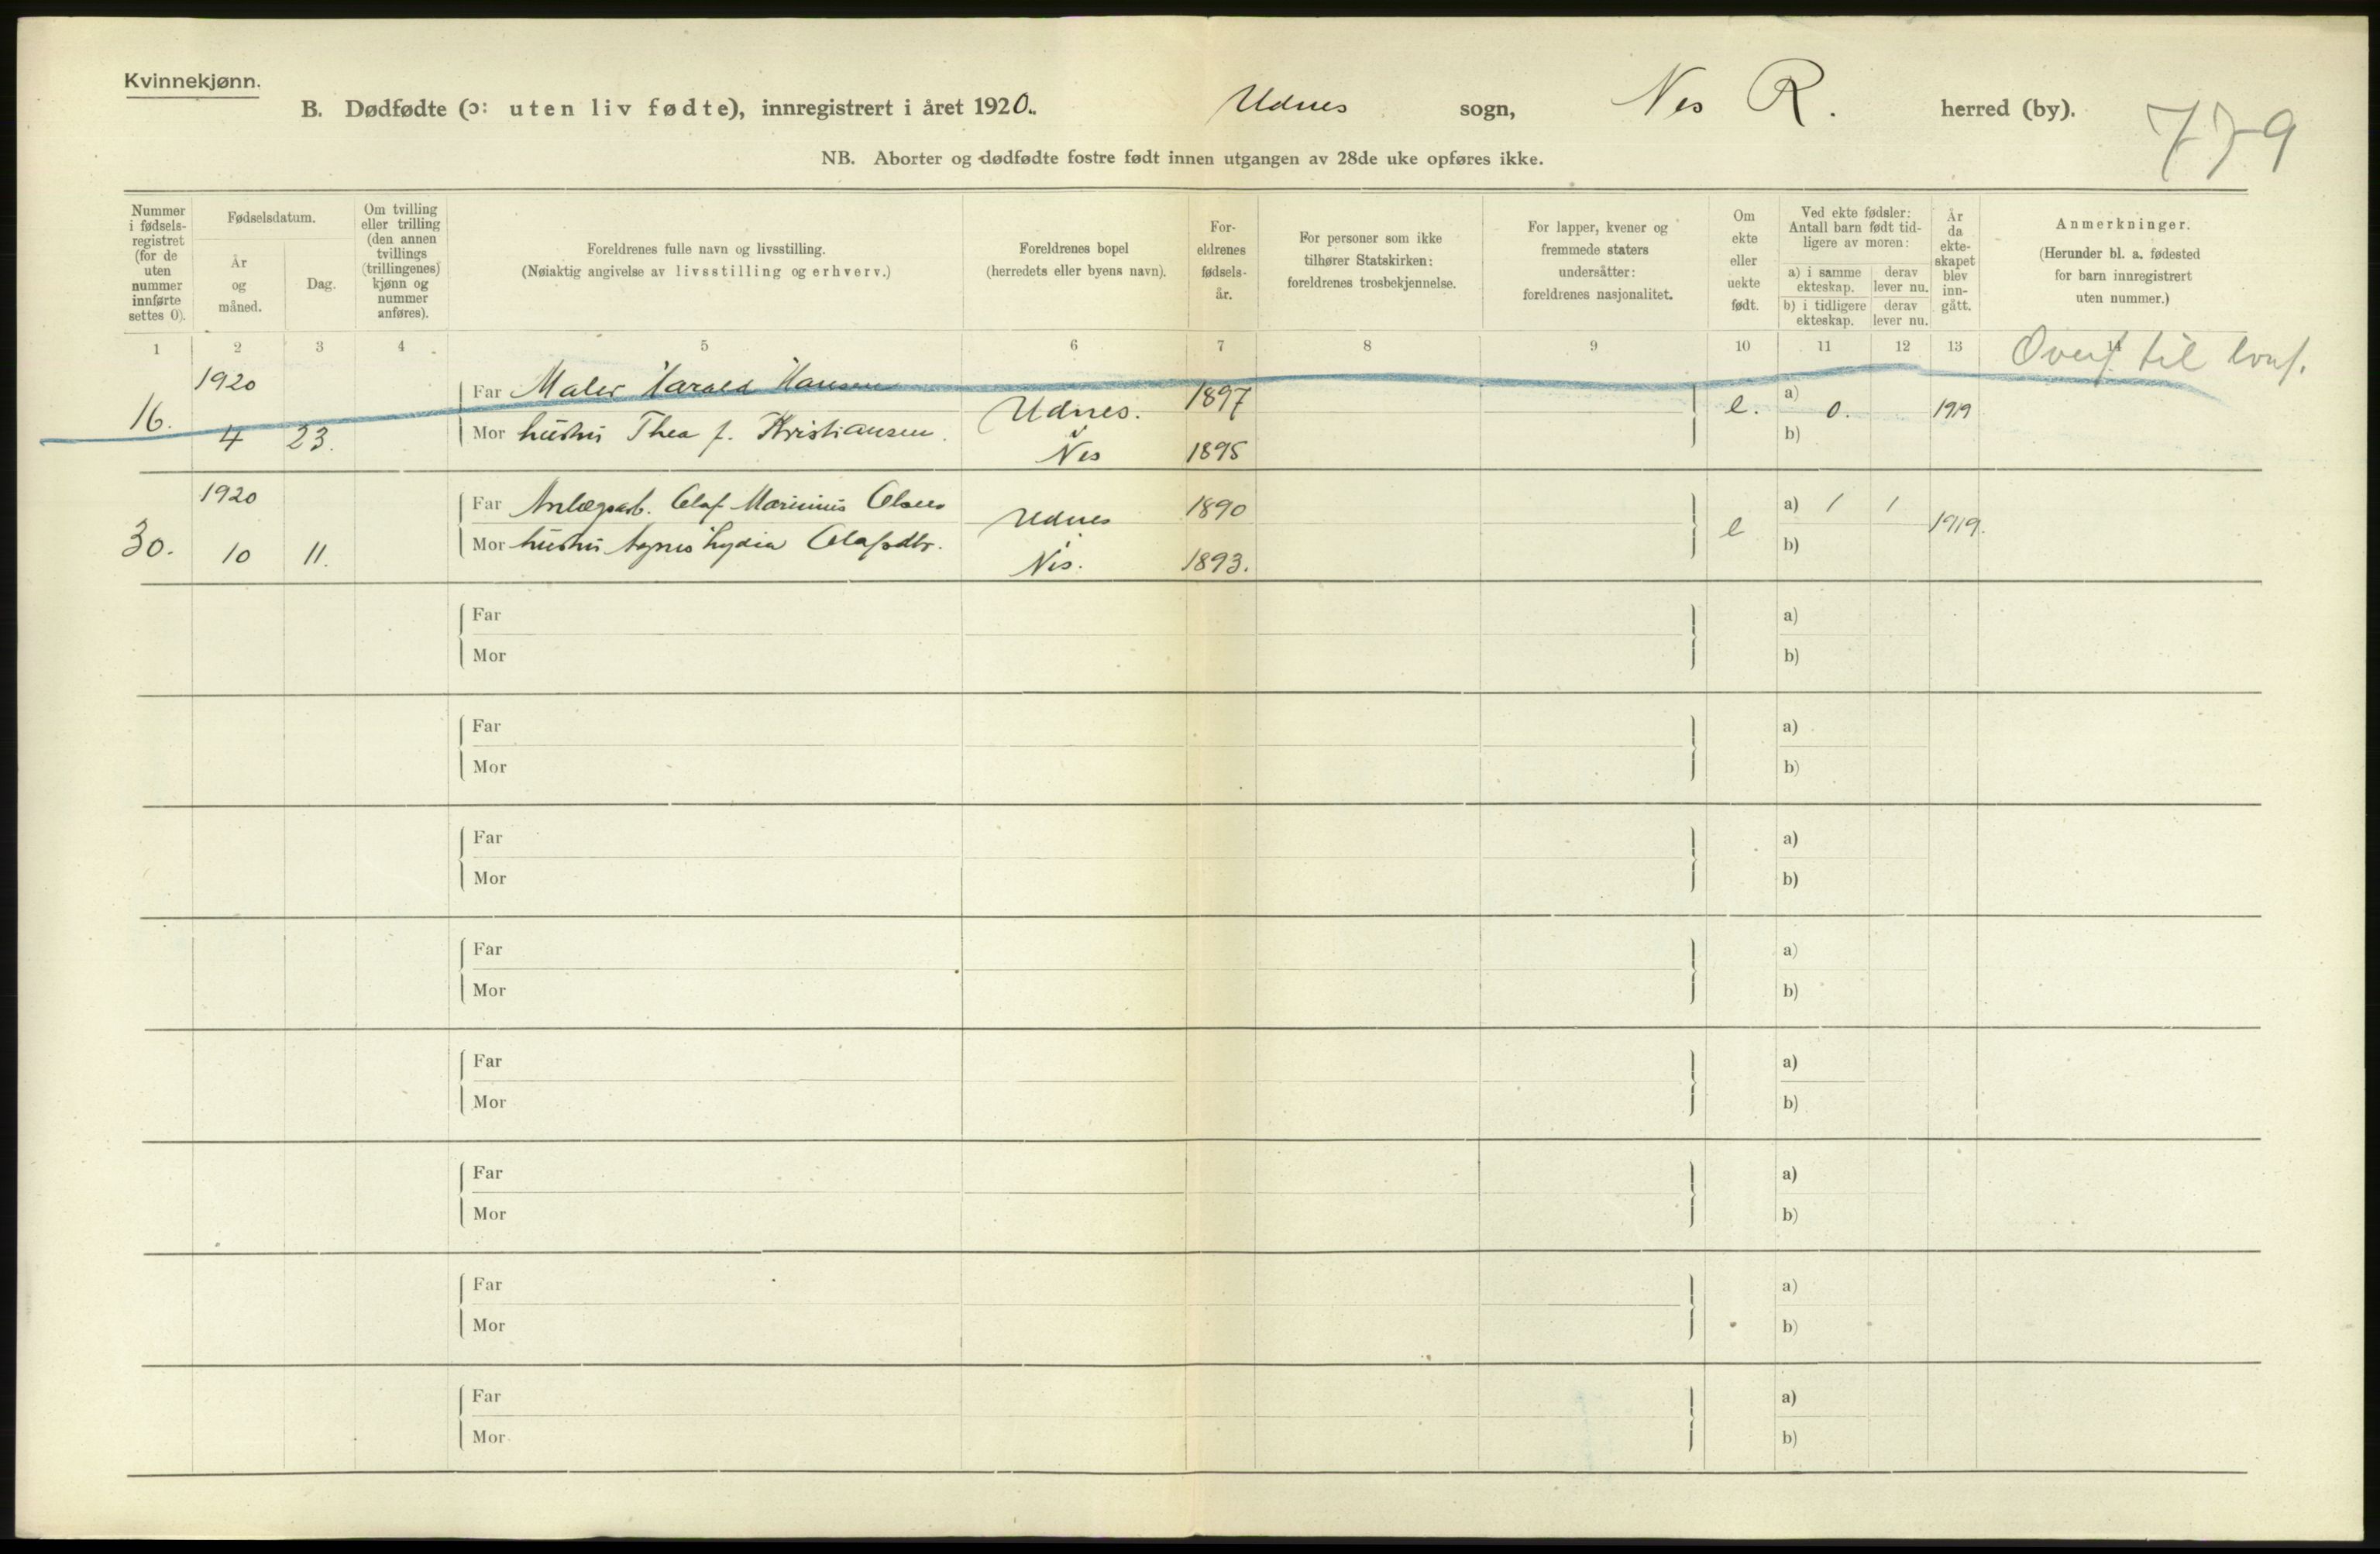 Kvinnekjønn.
B. Dødfødte (ɔ: uten liv fødte), innregistrert i året 1920. Udnes sogn, Nes R. herred (by).
779
NB. Aborter og dødfødte fostre født innen utgangen av 28de uke opføres ikke.
Nummer i fødsels-registret (for de uten nummer innførte settes 0).
Fødselsdatum.
År og måned.
Dag.
Om tvilling eller trilling (den annen tvillings (trillingenes) kjønn og nummer anføres).
Foreldrenes fulle navn og livsstilling.
(Nøiaktig angivelse av livsstilling og erhverv.)
Foreldrenes bopel
(herredets eller byens navn).
For-eldrenes fødsels-år.
For personer som ikke tilhører Statskirken: foreldrenes trosbekjennelse.
For lapper, kvener og fremmede staters undersåtter: foreldrenes nasjonalitet.
Om ekte eller uekte født.
Ved ekte fødsler: Antall barn født tid-ligere av moren:
a) i samme ekteskap.
derav lever nu.
b) i tidligere ekteskap.
derav lever nu.
År da ekte-skapet blev inn-gått.
Anmerkninger.
(Herunder bl. a. fødested for barn innregistrert uten nummer.)
1 2 3 4 5 6 7 8 9 10 11 12 13 14
Overf. til
1920
Far Maler Harald Hansen 1897
16. 4 23. Udnes. e. a) 0. 1919
Mor hustru Thea f. Kristiansen. Nes 1895 b)
1920
Far Anlægsarb. Olaf Marinius Olsen 1890 a) 1 1
30. 10 11. Udnes e 1919.
Mor hustru Agnes Lydia Olafsdtr. Nes. 1893. b)
Far a)
Mor b)
Far a)
Mor b)
Far a)
Mor b)
Far a)
Mor b)
Far a)
Mor b)
Far a)
Mor b)
Far a)
Mor b)
Far a)
Mor b)